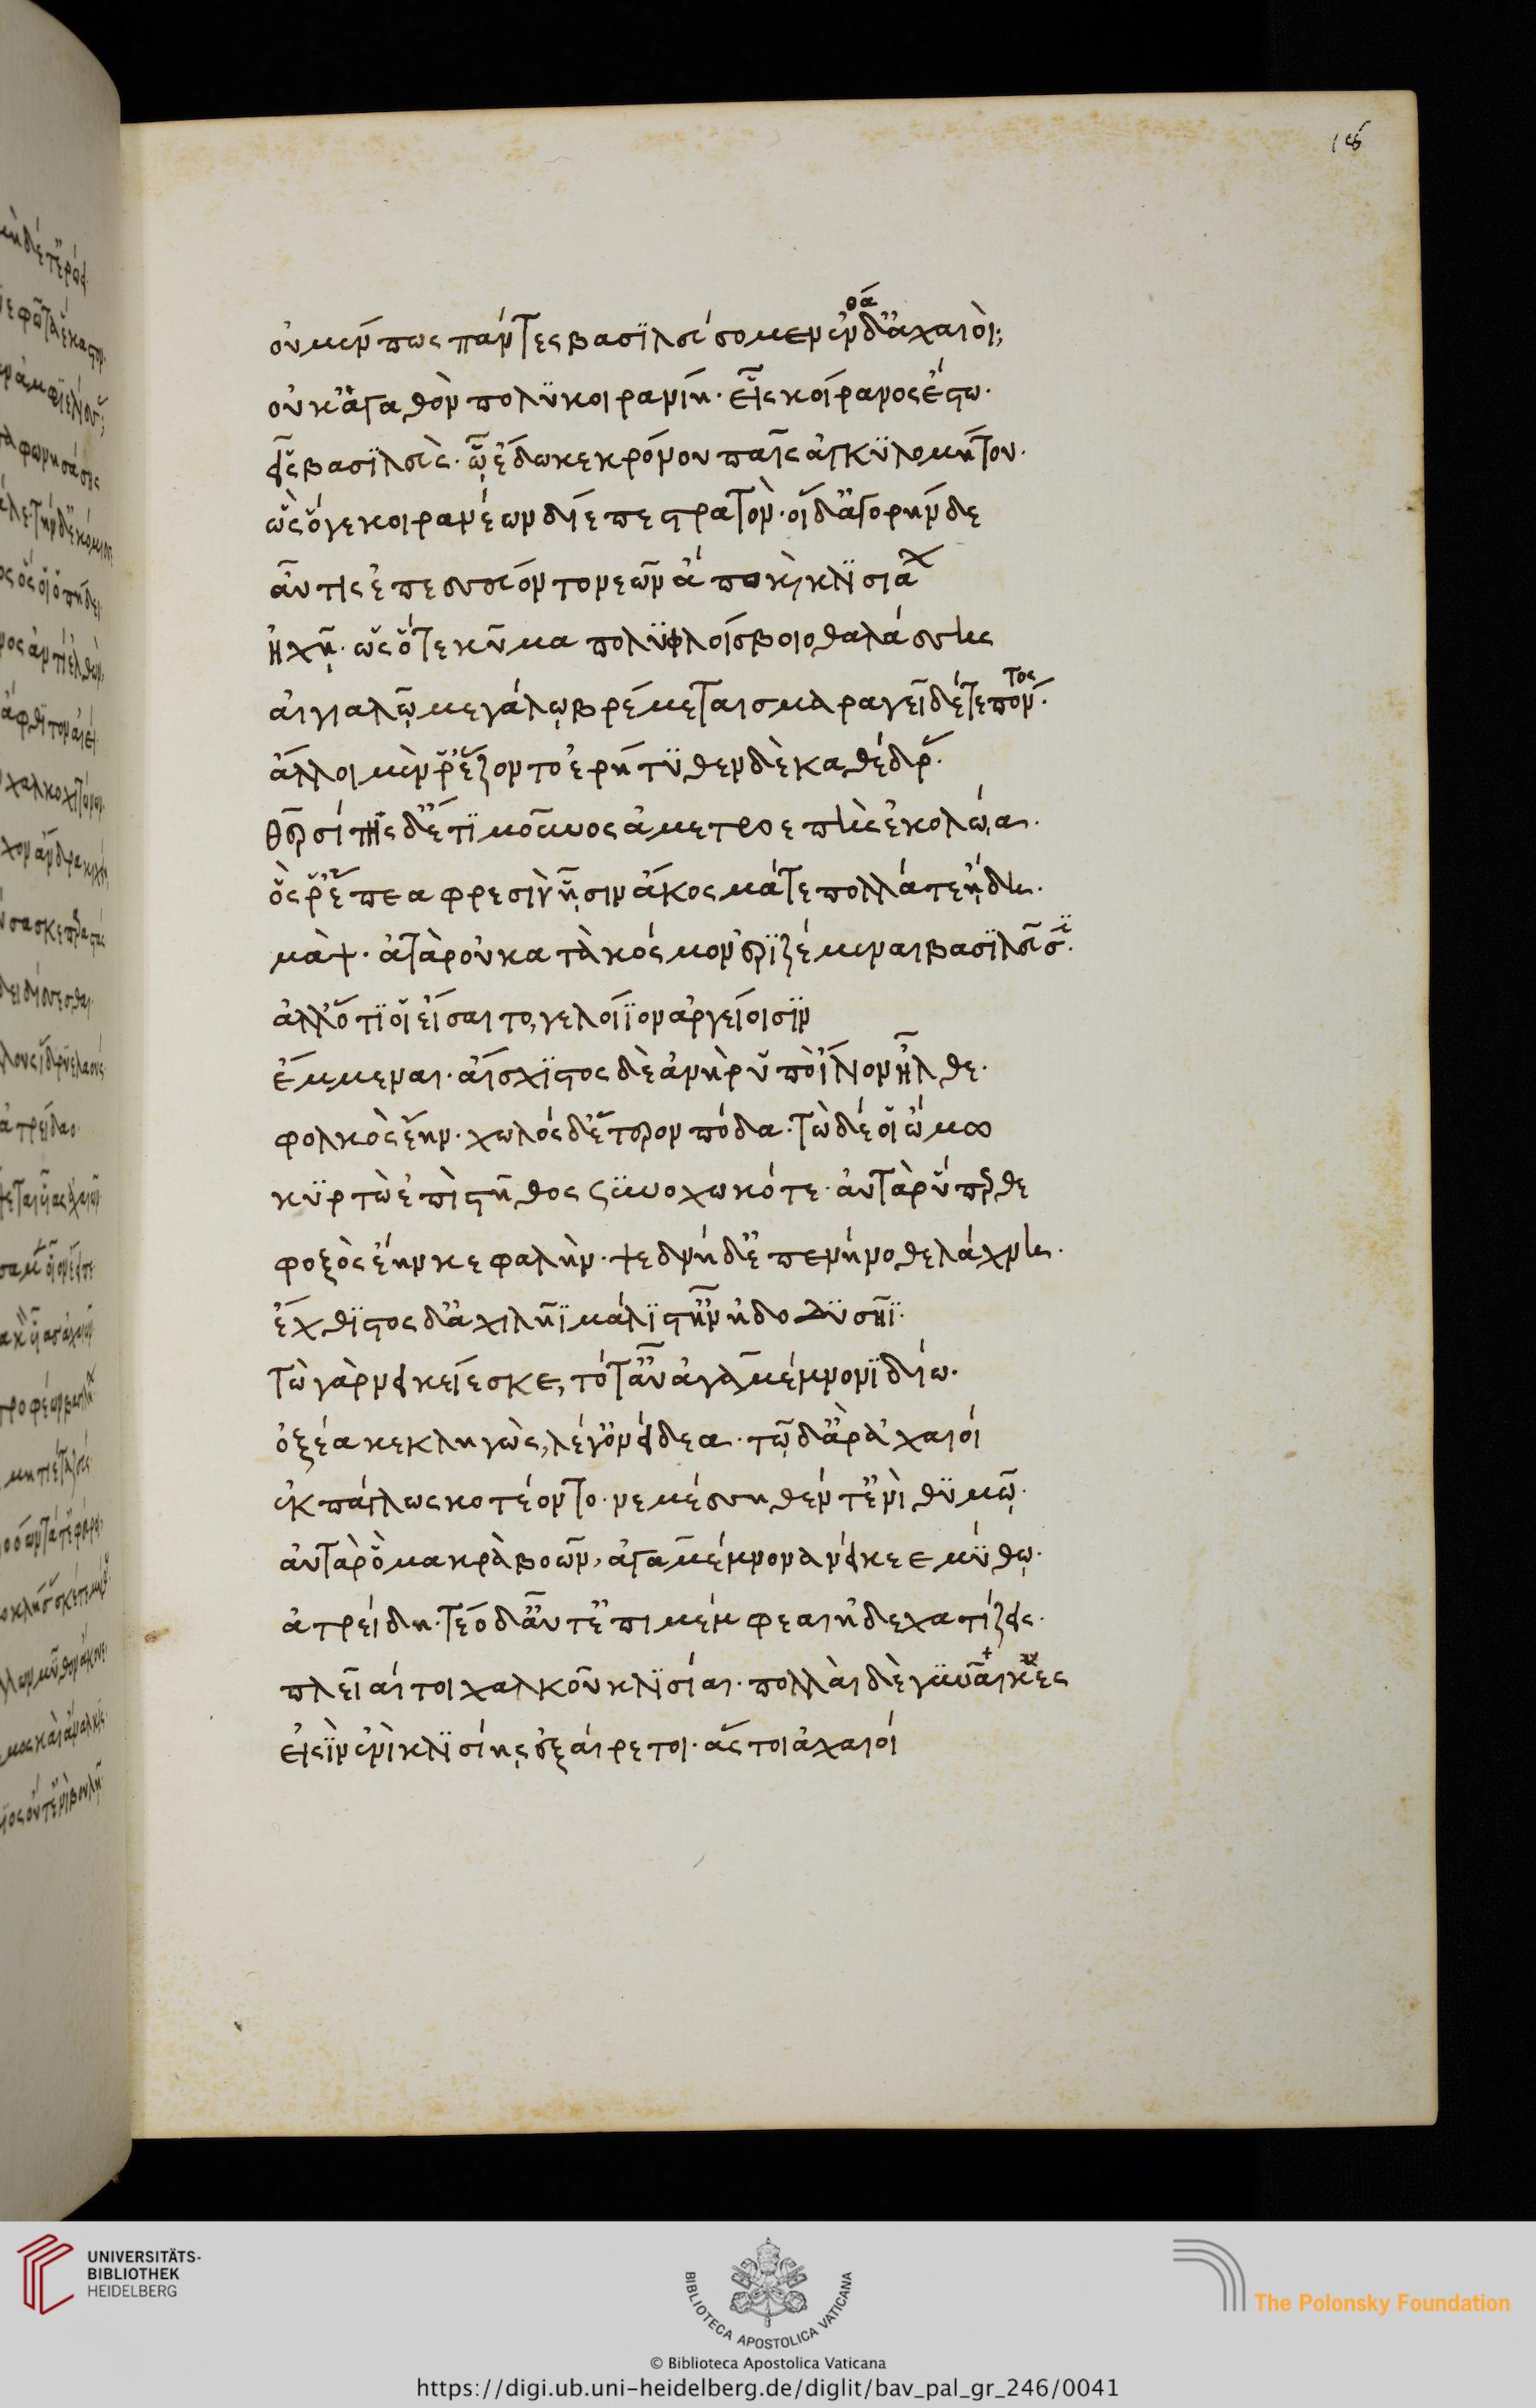 οὐ μέν πως πάντες βασϊλεύσομεν ἐνθάδ' ἀχαιοὶ;
οὐκ ἀγαθὸν πολϋκοιρανίη· εἷς κοίρανος ἔστω·
εἷς βασϊλεὺς· ᾧ ἔδωκε κρόνου παῖς ἀγκϋλομήτου·
ὣς ὅγε κοιρανέων δίεπε στρατὸν· οἱ δ' ἀγορήνδε
αὖτις ἐπεσσεύοντο νεῶν ἄπο καὶ κλϊσιάων
ἠχῇ· ὡς ὅτε κῦμα πολϋφλοίσβοιο θαλάσσης
αἰγιαλῷ μεγάλῳ βρέμεται σμαραγεῖ δέ τε πόντος·
ἄλλοι μέν ῥ' ἕζοντο ἐρήτϋθεν δὲ καθέδρας·
θερσίτης δ' ἔτϊ μοῦνος ἀμετροεπὴς ἐκολῴα·
ὃς ῥ' ἔπεα φρεσὶν ᾗσιν ἄκοσμά τε πολλά τε ᾔδη·
μὰψ· ἀτὰρ οὐ κατὰ κόσμον ἐρϊζέμεναι βασϊλεῦσϊ·
ἀλλ' ὅ τϊ οἱ εἴσαιτο, γελοίϊον ἀργείοισϊν
ἔμμεναι· αἴσχϊστος δὲ ἀνὴρ ὑπὸ ἴλϊον ἦλθε·
φολκὸς ἔην· χωλός δ' ἕτερον πόδα· τὼ δέ οἱ ὤμω
κϋρτὼ ἐπὶ στῆθος συνοχωκότε· αὐτὰρ ὕπερθε
φοξὸς ἔην κεφαλὴν· ψεδνή δ' ἐπενήνοθε λάχνη·
ἔχθϊστος δ' ἀχιλῆϊ μάλϊστ' ἦν ἠδ' ὀδϋσῆϊ·
τὼ γὰρ νεικείεσκε, τότ' αὖ ἀγαμέμνονϊ δίω·
ὀξέα κεκληγὼς, λέγ' ὀνείδεα· τῷ δ' ἄρ' ἀχαιοί
ἐκπάγλως κοτέοντο· νεμέσσηθέν τ' ἐνὶ θϋμῷ·
αὐτὰρ ὃ μακρὰ βοῶν, ἀγαμέμνονα νείκεε μύθῳ·
ἀτρείδη· τέο δ' αὖτ' ἐπιμέμφεαι ἠδὲ χατίζεις·
πλεῖαί τοι χαλκοῦ κλϊσίαι· πολλὰι δὲ γυναῖκες
εἰσὶν ἐνὶ κλϊσίης ἐξαίρετοι· ἅς τοι ἀχαιοί
UNIVERSITÄTS-
BIBLIOTHEK
HEIDELBERG
BIBLIOTECA APOSTOLICA VATICANA
The Polonsky Foundation
© Biblioteca Apostolica Vaticana
https://digi.ub.uni-heidelberg.de/diglit/bav_pal_gr_246/0041